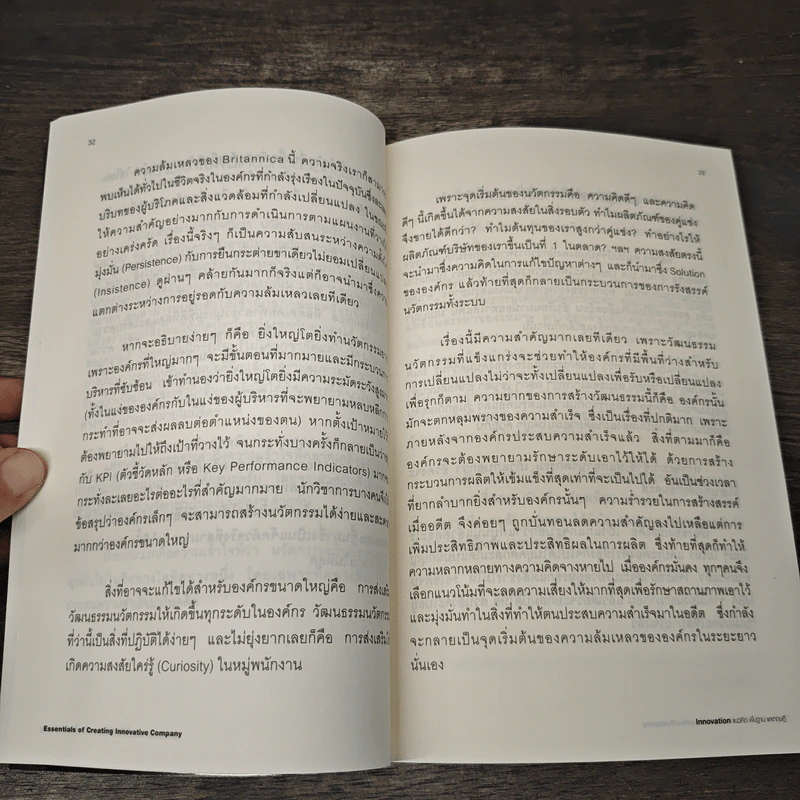 32
ความล้มเหลวของ Britannica นี้ ความจริงเราก็สามาร
พบเห็นได้ทั่วไปในชีวิตจริงในองค์กรที่กำลังรุ่งเรืองในปัจจุบันซึ่ง
บริบทของผู้บริโภคและสิ่งแวดล้อมที่กำลังเปลี่ยนแปลง ใน
ให้ความสำคัญอย่างมากกับการดำเนินการตามแผนงานที่วาง
อย่างเคร่งครัด เรื่องนี้จริงๆ ก็เป็นความสับสนระหว่างความ
มุ่งมั่น (Persistence) กับการยืนกระต่ายขาเดียวไม่ยอมเปลี่ยนแปลง
(Insistence) ดูผ่านๆ คล้ายกันมากก็จริงแต่ก็อาจนำมาซึ่งความ
แตกต่างระหว่างการอยู่รอดกับความล้มเหลวเลยทีเดียว
หากจะอธิบายง่ายๆ ก็คือ ยิ่งใหญ่โตยิ่งทำนวัตกรรมยาก
เพราะองค์กรที่ใหญ่มากๆ จะมีขั้นตอนที่มากมายและมีกระบวน
บริหารที่ซับซ้อน เข้าทำนองว่ายิ่งใหญ่โตยิ่งมีความระมัดระวังสูง
(ทั้งในแง่ขององค์กรกับในแง่ของผู้บริหารที่จะพยายามหลบหลีก
กระทำที่อาจจะส่งผลลบต่อตำแหน่งของตน) หากตั้งเป้าหมายไว้
ต้องพยายามไปให้ถึงเป้าที่วางไว้ จนกระทั่งบางครั้งก็กลายเป็นว่า
กับ KPI (ตัวชี้วัดหลัก หรือ Key Performance Indicators) มาก
กระทั่งละเลยอะไรต่ออะไรที่สำคัญมากมาย นักวิชาการบางคนจึง
ข้อสรุปว่าองค์กรเล็กๆ จะสามารถสร้างนวัตกรรมได้ง่ายและสะดวก
มากกว่าองค์กรขนาดใหญ่
สิ่งที่อาจจะแก้ไขได้สำหรับองค์กรขนาดใหญ่คือ การส่งเสริ
วัฒนธรรมนวัตกรรมให้เกิดขึ้นทุกระดับในองค์กร วัฒนธรรมนวัตกร
ที่ว่านี้เป็นสิ่งที่ปฏิบัติได้ง่ายๆ และไม่ยุ่งยากเลยก็คือ การส่งเสริม
เกิดความสงสัยใคร่รู้ (Curiosity) ในหมู่พนักงาน
Essentials of Creating Innovative Company
เพราะจุดเริ่มต้นของนวัตกรรมคือ ความคิดดีๆ และความคิด
ดีๆ นี้เกิดขึ้นได้จากความสงสัยในสิ่งรอบตัว ทำไมผลิตภัณฑ์ของคู่แข่ง
จึงขายได้ดีกว่า? ทำไมต้นทุนของเราสูงกว่าคู่แข่ง? ทำอย่างไรให้
ผลิตภัณฑ์บริษัทของเราขึ้นเป็นที่ 1 ในตลาด? ฯลฯ ความสงสัยตรงนี้
จะนำมาซึ่งความคิดในการแก้ไขปัญหาต่างๆ และก็นำมาซึ่ง Solution
ขององค์กร แล้วท้ายที่สุดก็กลายเป็นกระบวนการของการรังสรรค์
นวัตกรรมทั้งระบบ
เรื่องนี้มีความสำคัญมากเลยทีเดียว เพราะวัฒนธรรม
นวัตกรรมที่แข็งแกร่งจะช่วยทำให้องค์กรที่มีพื้นที่ว่างสำหรับ
การเปลี่ยนแปลงไม่ว่าจะทั้งเปลี่ยนแปลงเพื่อรับหรือเปลี่ยนแปลง
เพื่อรุกก็ตาม ความยากของการสร้างวัฒนธรรมนี้ก็คือ องค์กรนั้น
มักจะตกหลุมพรางของความสำเร็จ ซึ่งเป็นเรื่องที่ปกติมาก เพราะ
ภายหลังจากองค์กรประสบความสำเร็จแล้ว สิ่งที่ตามมาก็คือ
องค์กรจะต้องพยายามรักษาระดับเอาไว้ให้ได้ ด้วยการสร้าง
กระบวนการผลิตให้เข้มแข็งที่สุดเท่าที่จะเป็นไปได้ อันเป็นช่วงเวลา
ที่ยากลำบากยิ่งสำหรับองค์กรนั้นๆ ความร่ำรวยในการสร้างสรรค์
เมื่ออดีต จึงค่อยๆ ถูกบั่นทอนลดความสำคัญลงไปเหลือแต่การ
เพิ่มประสิทธิภาพและประสิทธิผลในการผลิต ซึ่งท้ายที่สุดก็ทำให้
ความหลากหลายทางความคิดจางหายไป เมื่อองค์กรมั่นคง ทุกๆคนจึง
เลือกแนวโน้มที่จะลดความเสี่ยงให้มากที่สุดเพื่อรักษาสถานภาพเอาไว้
และมุ่งมั่นทำในสิ่งที่ทำให้ตนประสบความสำเร็จมาในอดีต ซึ่งกำลัง
จะกลายเป็นจุดเริ่มต้นของความล้มเหลวขององค์กรในระยะยาว
นั่นเอง
Innovation แนวคิด พื้นฐาน และทฤษฎี